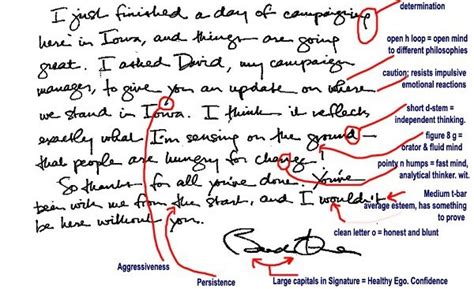 I just finished a day of campaigning
determination
here in Iowa, and things are going
open h loop = open mind
to different philosophies
great. I asked David, my campaign
caution; resists impulsive
emotional reactions
manager, to give you an update on where
we stand in Iowa. I think it reflects
short d-stem =
independent thinking.
exactly what I'm sensing on the ground –
figure 8 g =
orator & fluid mind
that people are hungry for change.
pointy n humps = fast mind,
analytical thinker. wit.
So thanks for all you've done. You've
Medium t-bar
average esteem, has something
to prove
been with me from the start, and I wouldn't
clean letter o = honest and blunt
be here without you.
Aggressiveness
Persistence
Large capitals in Signature = Healthy Ego. Confidence